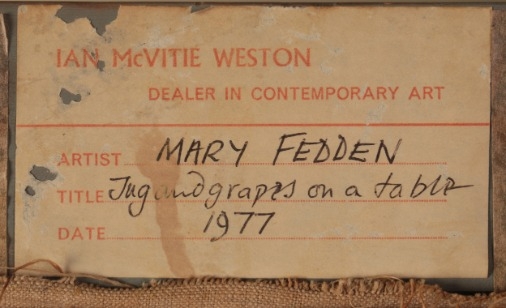 IAN McVITIE WESTON
DEALER IN CONTEMPORARY ART
ARTIST MARY FEDDEN
TITLE Jug and grapes on a table
DATE 1977